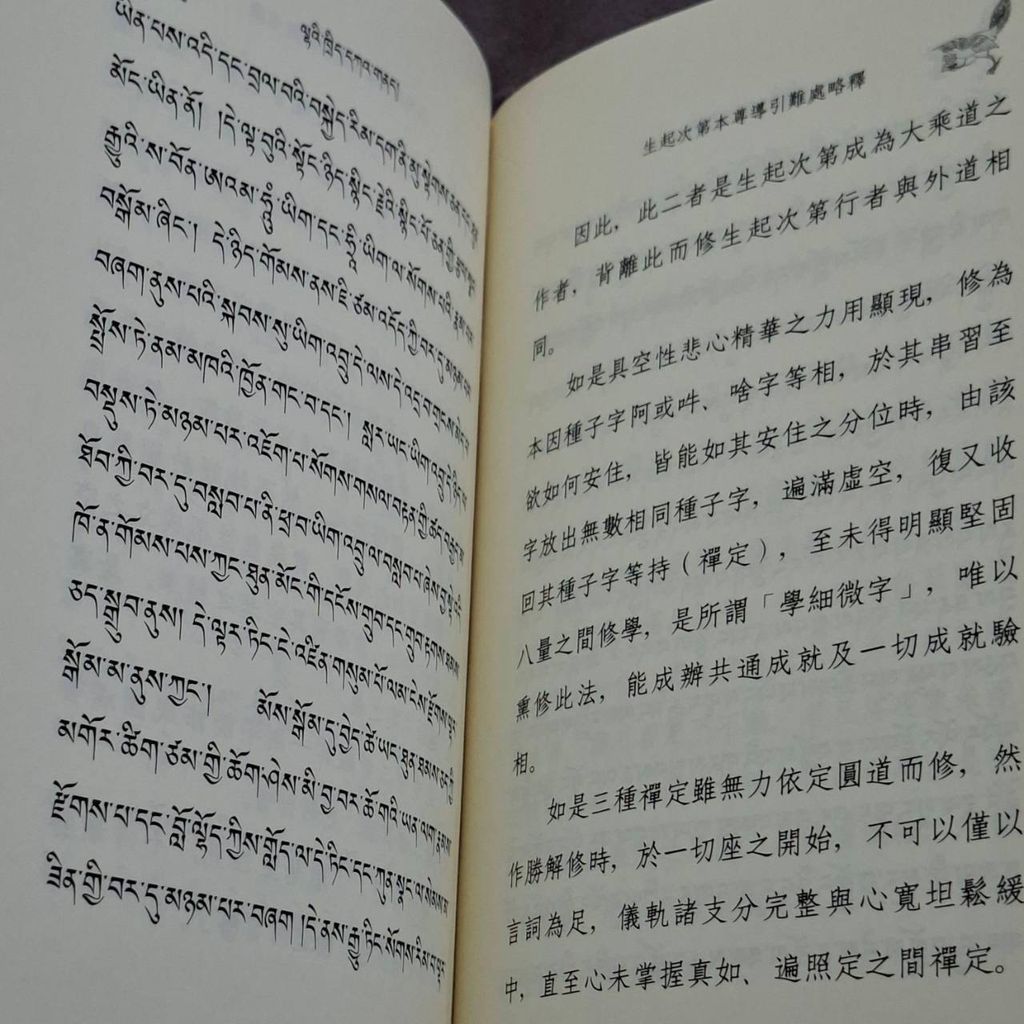 ལྷའི་ཁྲིད་དཀའ་གནད།
ཡིན་པས་འདི་དང་བྲལ་བའི་བསྐྱེད་རིམ་དག་ནི་མུ་སྟེགས་ཅན་དང་
མོང་ཡིན་ནོ། །དེ་ལྟ་བུའི་སྟོང་ཉིད་སྙིང་རྗེའི་སྙིང་པོ་ཅན་གྱི་
རྒྱུའི་ས་བོན་ཨའམ་ཧཱུྃ་ཡིག་དང་ཧྲཱིཿ་ཡིག་ལ་སོགས་པའི་རྣམ་པར་
བསྒོམ་ཞིང་། དེ་ཉིད་གོམས་ནས་ཇི་ཙམ་འདོད་ཀྱི་བར་དུ་མཉམ་པར་
བཞག་ནུས་པའི་སྐབས་སུ་ཡིག་འབྲུ་དེ་ལས་དེ་འདྲ་བ་གྲངས་མེད་པ་
སྤྲོས་ཏེ་ནམ་མཁའི་ཁྱོན་གང་བ་དང་། སླར་ཡང་ཡིག་འབྲུ་དེ་ཉིད་ལ་
བསྡུས་ཏེ་མཉམ་པར་འཇོག་པ་སོགས་གསལ་བརྟན་གྱི་ཚད་བརྒྱད་མ་
ཐོབ་ཀྱི་བར་དུ་བསླབ་པ་ནི་ཕྲ་བ་ཡིག་འབྲུ་ལ་བསླབ་པ་ཞེས་བྱ་སྟེ་འདི་
ཁོ་ན་གོམས་པས་ཀྱང་ཐུན་མོང་གི་དངོས་གྲུབ་དང་གྲུབ་རྟགས་ཐམས་
ཅད་སྒྲུབ་ནུས། དེ་ལྟར་ཏིང་ངེ་འཛིན་གསུམ་པོ་ལམ་ངེས་རྫོགས་ལྟར་
སྒོམ་མ་ནུས་ཀྱང་། མོས་སྒོམ་དུ་བྱེད་ཚེ་ཡང་ཐུན་ཐམས་ཅད་ཀྱི་
མགོར་ཚིག་ཙམ་གྱི་ཆོག་ཤེས་མི་བྱ་བར་ཆོ་གའི་ཡན་ལག་རྣམས་
རྫོགས་པ་དང་བློ་ལྷོད་ཀྱིས་གློད་ལ་དེ་ཏིང་དང་ཀུན་སྣང་ལ་སེམས་མ་
ཟིན་གྱི་བར་དུ་མཉམ་པར་བཞག །དེ་ནས་རྒྱུ་ཏིང་སོགས་རིམ་བ་ལྟར་
生起次第本尊導引難處略釋
因此，此二者是生起次第成為大乘道之
作者，背離此而修生起次第行者與外道相
同。
如是具空性悲心精華之力用顯現，修為
本因種子字阿或吽、啥字等相，於其串習至
欲如何安住，皆能如其安住之分位時，由該
字放出無數相同種子字，遍滿虛空，復又收
回其種子字等持（禪定），至未得明顯堅固
八量之間修學，是所謂「學細微字」，唯以
熏修此法，能成辦共通成就及一切成就驗
相。
如是三種禪定雖無力依定圓道而修，然
作勝解修時，於一切座之開始，不可以僅以
言詞為足，儀軌諸支分完整與心寬坦鬆緩
中，直至心未掌握真如、遍照定之間禪定。